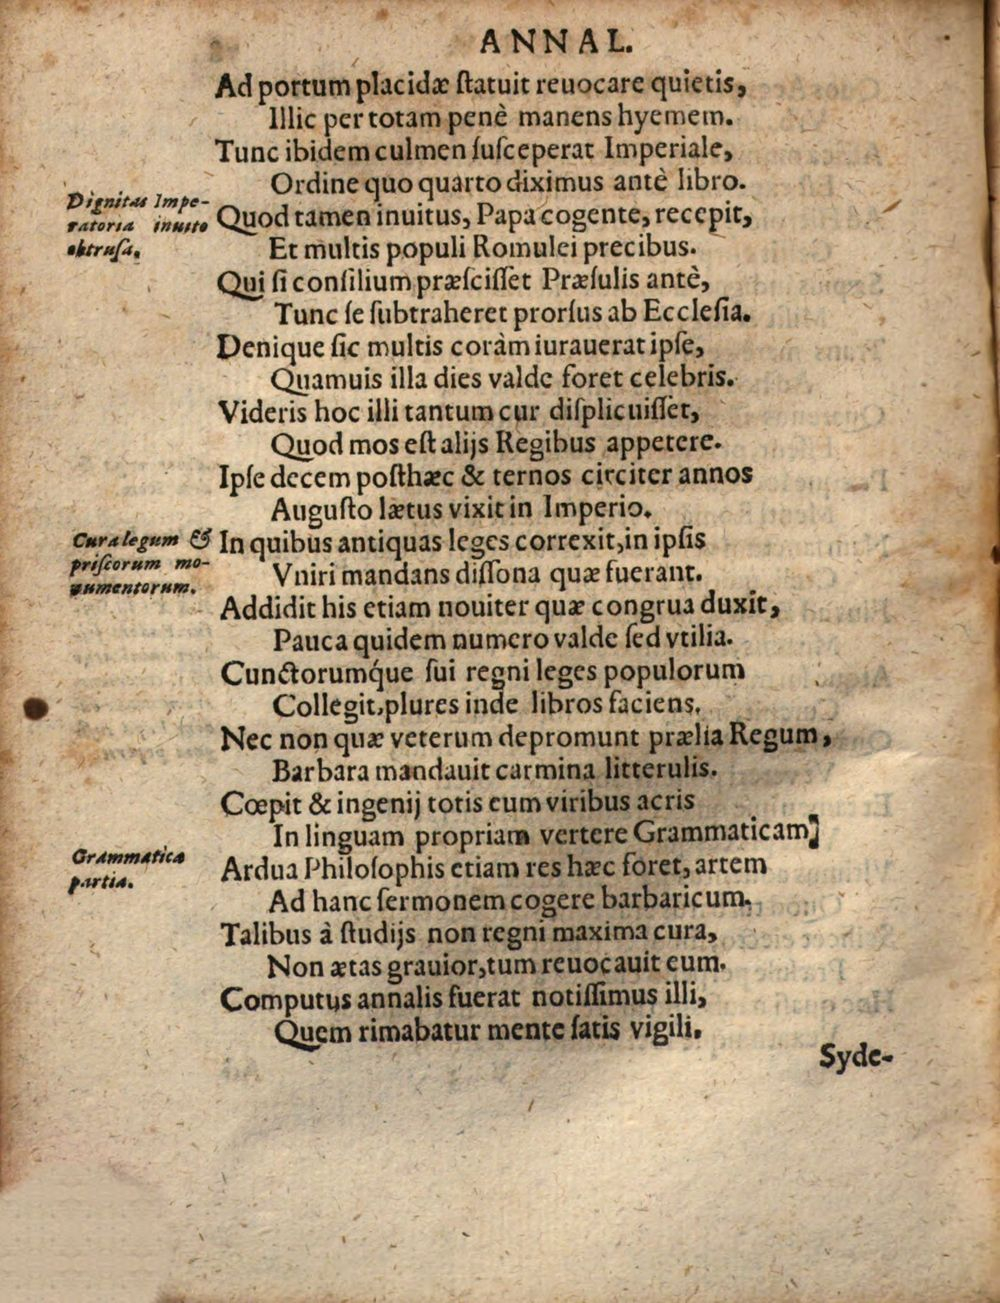 ANNAL.
Ad portum placidæ ſtatuit reuocare quietis,
Illic per totam penè manens hyemem.
Tunc ibidem culmen ſuſceperat Imperiale,
Ordine quo quarto diximus antè libro.
Dignitas Impe-
ratoria inuito
obtruſa.
Quod tamen inuitus, Papa cogente, recepit,
Et multis populi Romulei precibus.
Qui ſi conſilium præſciſſet Præſulis antè,
Tunc ſe ſubtraheret prorſus ab Eccleſia.
Denique ſic multis coràm iurauerat ipſe,
Quamuis illa dies valde foret celebris.
Videris hoc illi tantum cur diſplicuiſſet,
Quod mos eſt alijs Regibus appetere.
Ipſe decem poſthæc & ternos circiter annos
Auguſto lætus vixit in Imperio.
Cura legum &
priſcorum mo-
numentorum.
In quibus antiquas leges correxit, in ipſis
Vniri mandans diſſona quæ fuerant.
Addidit his etiam nouiter quæ congrua duxit,
Pauca quidem numero valde ſed vtilia.
Cunctorumq́ue ſui regni leges populorum
Collegit, plures inde libros faciens.
Nec non quæ veterum depromunt prælia Regum,
Barbara mandauit carmina litterulis.
Cœpit & ingenij totis cum viribus acris
In linguam propriam vertere Grammaticam;
Grammatica
partia.
Ardua Philoſophis etiam res hæc foret, artem
Ad hanc ſermonem cogere barbaricum.
Talibus à ſtudijs non regni maxima cura,
Non ætas grauior, tum reuocauit eum.
Computus annalis fuerat notiſſimus illi,
Quem rimabatur mente ſatis vigili.
Syde-